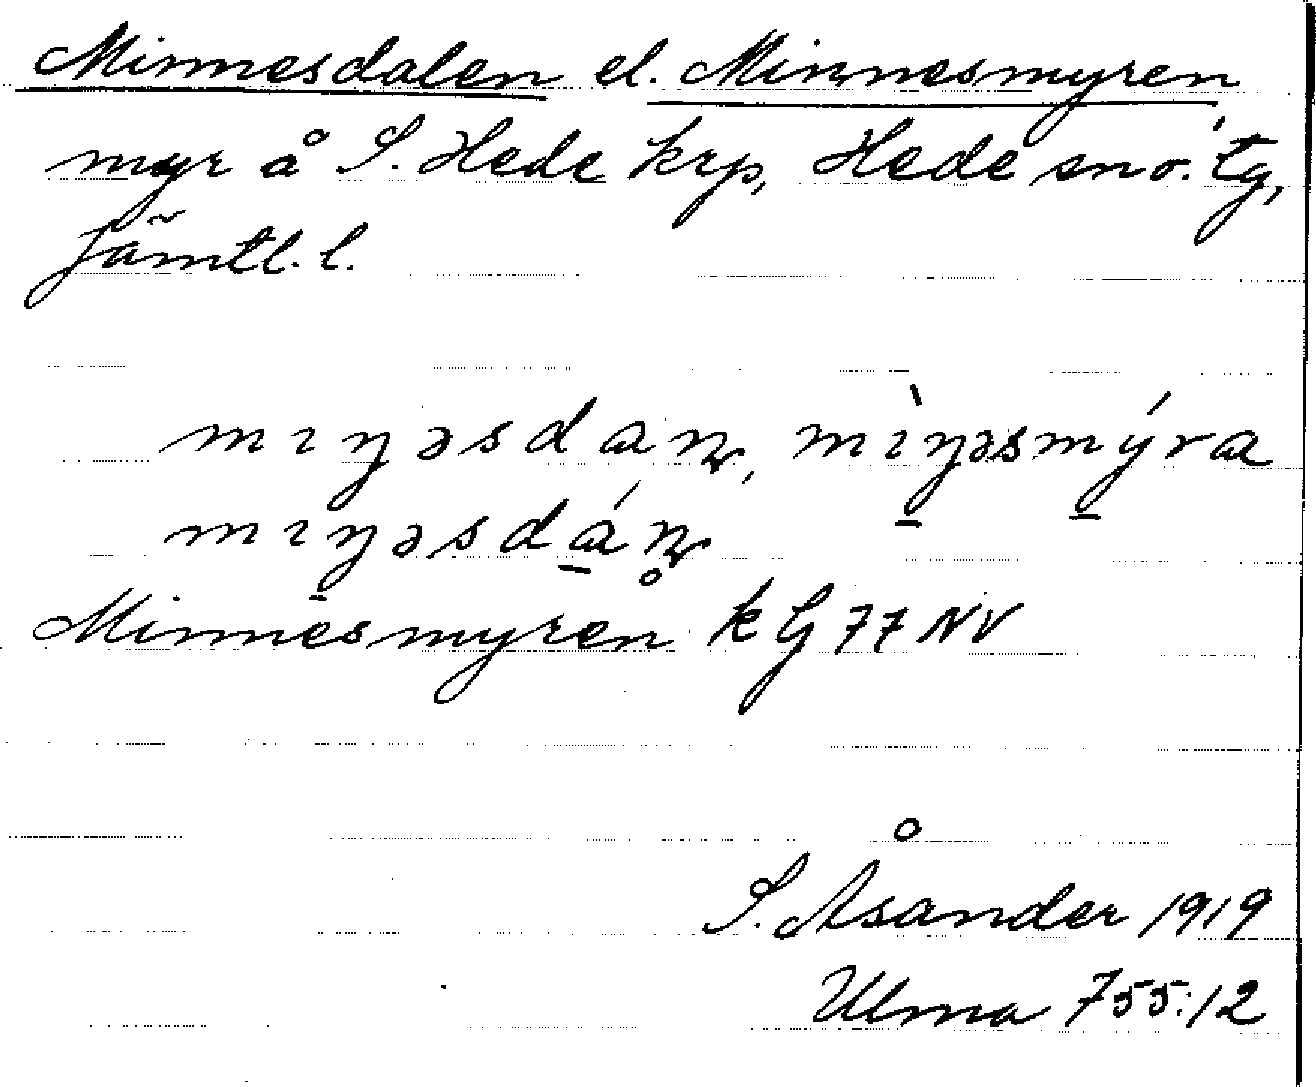 Minnesdalen el. Minnesmyren
myr å S. Hede krp, Hede sn o. tg,
Jämtl. l.
mıŋəsdaɳ, mı̀ŋəsmýra
mıŋəsdáɳ
Minnesmyren k G 77 NV
S. Åsander 1919
Ulma 755:12